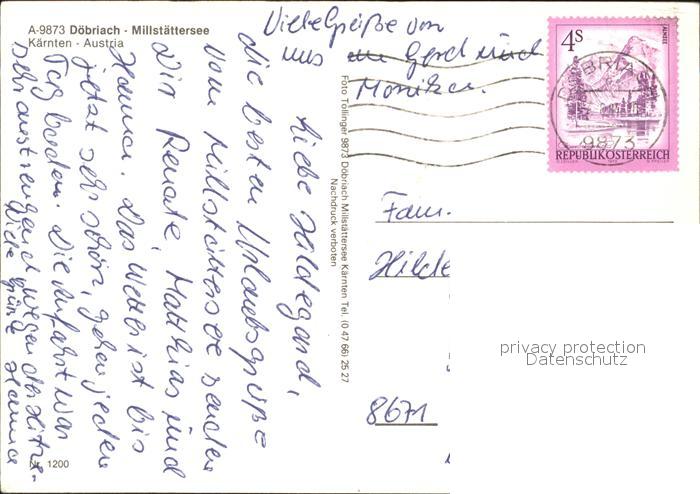 A-9873 Döbriach - Millstättersee
Kärnten - Austria
Liebe Hildegard,
die besten Urlaubsgrüße
vom Millstättersee senden
Dir Renate, Matthias und
Hanna. Das Wetter ist bis
jetzt sehr schön, gehen jeden
Tag baden. Die Anfahrt war
sehr anstrengend wegen der Hitze.
Viele Grüße Hanna
Viele Grüße von
uns Gerd und
Monika.
Nr. 1200
Foto Tollinger 9873 Döbriach Millstättersee Kärnten Tel. (0 47 66) 25 27
Nachdruck verboten
4S
ALMSEE
REPUBLIK ÖSTERREICH
DÖBRIACH
9873
Fam.
Hilde
8671
privacy protection
Datenschutz